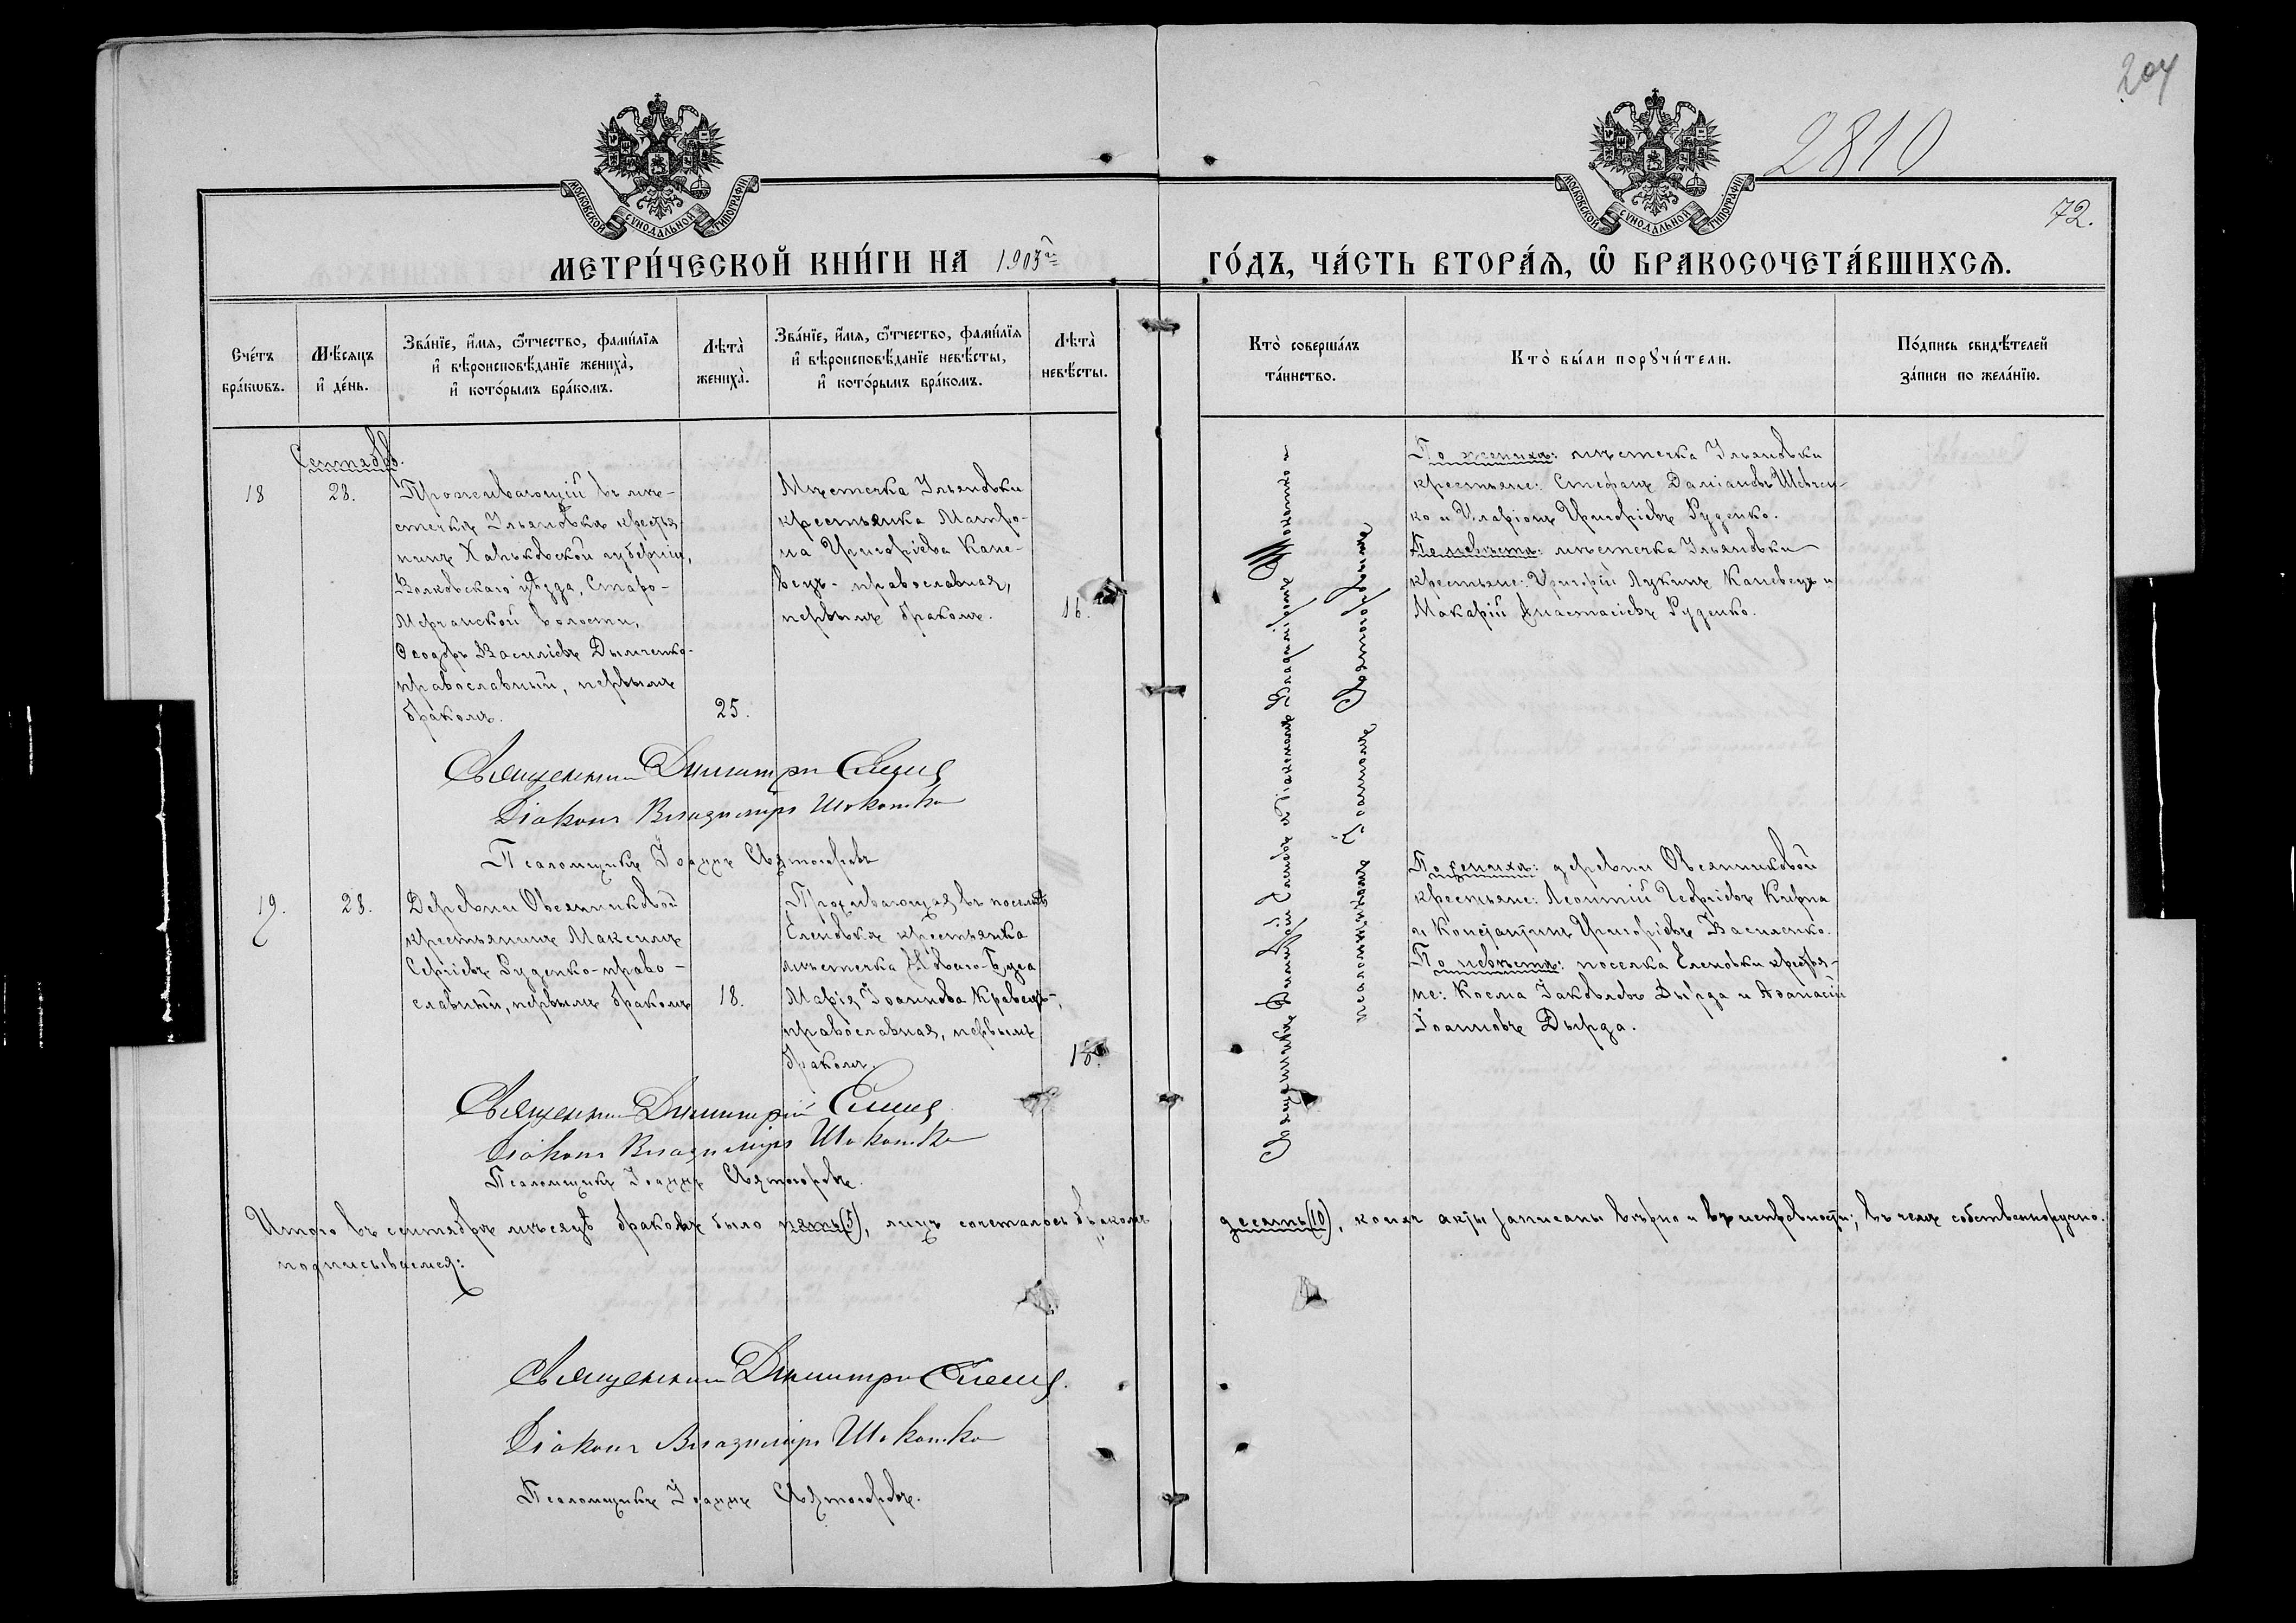 204
2810
72.
МОСКОВСКОЙ СУНОДАЛЬНОЙ ТИПОГРАФІИ
МОСКОВСКОЙ СУНОДАЛЬНОЙ ТИПОГРАФІИ
МЕТРИ́ЧЕСКОЙ КНИ́ГИ НА 1903й
ГО́ДЪ, ЧА́СТЬ ВТОРА́Я, Ѡ БРАКОСОЧЕТА́ВШИХСЯ.
Сче́тъ
бра́кωвъ.
Мѣ́сяцъ
и҆ де́нь.
Зва́нїе, и҆́мя, ѻ҆́тчество, фами́лїя
и҆ вѣроисповѣ́данїе жениха̀,
и҆ кото́рымъ бра́комъ.
Лѣта̀
жениха̀.
Зва́нїе, и҆́мя, ѻ҆́тчество, фами́лїя
и҆ вѣроисповѣ́данїе невѣ́сты,
и҆ кото́рымъ бра́комъ.
Лѣта̀
невѣ́сты.
Кто̀ соверша́лъ
та́инство.
Кто̀ бы́ли порꙋчи́тели.
По́дпись свидѣ́телей
за́писи по жела́нїю.
Сентябрь.
18
28.
Проживающій въ мѣ-
стечкѣ Ульяновкѣ крестья-
нинъ Харьковской губерніи,
Валковскаго уѣзда, Старо-
Мерчанской волости,
Ѳеодоръ Василіевъ Дымченко-
православный, первымъ
бракомъ.
25.
Мѣстечка Ульяновки
крестьянка Матро-
на Григоріева Кане-
вецъ - православная,
первымъ бракомъ.
16.
Священникъ Димитрій Клепачъ и Діаконъ Владиміръ Шокотко и
псаломщикомъ Іоанномъ Святогоровымъ
По женихѣ: мѣстечка Ульяновки
крестьяне: Стефанъ Даміановъ Шевчен-
ко и Иларіонъ Григоріевъ Руденко.
По невѣстѣ: мѣстечка Ульяновки
крестьяне: Григорій Лукинъ Каневецъ и
Макарій Анастасіевъ Руденко.
Священникъ Димитрій
Діаконъ Владиміръ Шокотко
Псаломщикъ Іоаннъ Святогоровъ
19.
28.
Деревни Овсянниковой
крестьянинъ Максимъ
Сергіевъ Руденко - право-
славный, первымъ бракомъ
18.
Проживающая въ поселкѣ
Еленовкѣ крестьянка
мѣстечка Новаго-Буга
Марія Іоаннова Кравецъ-,
православная, первымъ
бракомъ.
По женихѣ: деревни Овсянниковой
крестьяне: Леонтій Георгіевъ Кирпа
и Константинъ Григоріевъ Василенко.
По невѣстѣ: поселка Еленовки крестья-
не: Косма Іаковлевъ Дырда и Аѳанасій
Іоанновъ Дырда.
Священникъ Димитрій
Діаконъ Владиміръ Шокотко
Псаломщикъ Іоаннъ Святогоровъ.
Итого въ сентябрѣ мѣсяцѣ браковъ было пять (5), лицъ сочеталось бракомъ десять (10), коихъ акты записаны вѣрно и въ исправности; въ чемъ собственноручно
подписываемся:
Священникъ Димитрій
Діаконъ Владиміръ Шокотко
Псаломщикъ Іоаннъ Святогоровъ.